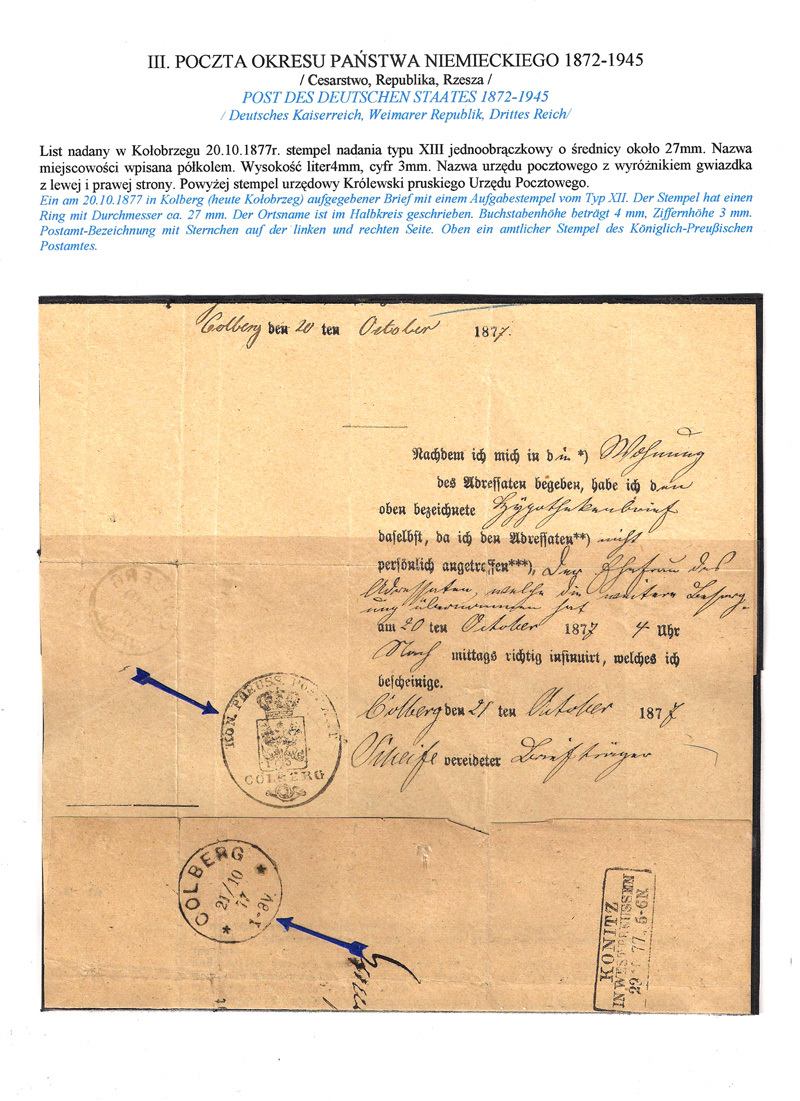 III. POCZTA OKRESU PAŃSTWA NIEMIECKIEGO 1872-1945
/ Cesarstwo, Republika, Rzesza /
POST DES DEUTSCHEN STAATES 1872-1945
/ Deutsches Kaiserreich, Weimarer Republik, Drittes Reich/
List nadany w Kołobrzegu 20.10.1877r. stempel nadania typu XIII jednoobrączkowy o średnicy około 27mm. Nazwa
miejscowości wpisana półkolem. Wysokość liter4mm, cyfr 3mm. Nazwa urzędu pocztowego z wyróżnikiem gwiazdka
z lewej i prawej strony. Powyżej stempel urzędowy Królewski pruskiego Urzędu Pocztowego.
Ein am 20.10.1877 in Kolberg (heute Kołobrzeg) aufgegebener Brief mit einem Aufgabestempel vom Typ XII. Der Stempel hat einen
Ring mit Durchmesser ca. 27 mm. Der Ortsname ist im Halbkreis geschrieben. Buchstabenhöhe beträgt 4 mm, Ziffernhöhe 3 mm.
Postamt-Bezeichnung mit Sternchen auf der linken und rechten Seite. Oben ein amtlicher Stempel des Königlich-Preußischen
Postamtes.
Colberg den 20 ten October 1877.
Nachdem ich mich in die *) Wohnung
des Adressaten begeben, habe ich den
oben bezeichnete Hypothekenbrief
daselbst, da ich den Adressaten**) nicht
persönlich angetroffen***), Der Ehefrau des
Adressaten, welche die weitere Besorg-
ung übernommen hat
am 20 ten October 1877 4 Uhr
Nach mittags richtig insinuirt, welches ich
bescheinige.
Colberg den 21 ten October 1877
vereideter Briefträger
KÖN. PREUSS. POST-AMT
COLBERG
COLBERG
21/10
77
1-8V.
* *
KONITZ
IN WESTPREUSSEN
77. 5-6N.